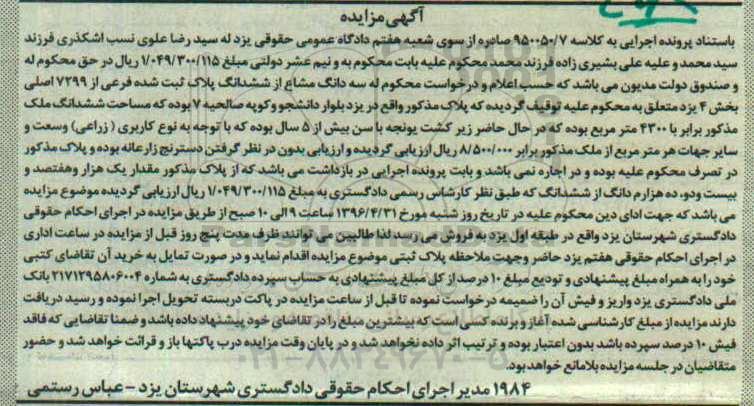 آگهی مزایده
باستناد پرونده اجرایی به کلاسه ۹۵۰۰۵۰/۷ صادره از سوی شعبه هفتم دادگاه عمومی حقوقی یزد له سید رضا علوی نسب اشکذری فرزند
سید محمد و علیه علی بشیری زاده فرزند محمد محکوم علیه بابت محکوم به و نیم عشر دولتی مبلغ ۱/۰۴۹/۳۰۰/۱۱۵ ریال در حق محکوم له
و صندوق دولت مدیون می باشد که حسب اعلام و درخواست محکوم له سه دانگ مشاع از ششدانگ پلاک ثبت شده فرعی از ۷۲۹۹ اصلی
بخش ۴ یزد متعلق به محکوم علیه توقیف گردیده که پلاک مذکور واقع در یزد بلوار دانشجو و کوچه صالحیه ۷ بوده که مساحت ششدانگ ملک
مذکور برابر با ۴۳۰۰ متر مربع بوده که در حال حاضر زیر کشت یونجه با سن بیش از ۵ سال بوده که با توجه به نوع کاربری ( زراعی) وسعت و
سایر جهات هر متر مربع از ملک مذکور برابر ۸/۵۰۰/۰۰۰ ریال ارزیابی گردیده و ارزیابی بدون در نظر گرفتن دسترنج زارعانه بوده و پلاک مذکور
در تصرف محکوم علیه بوده و در اجاره نمی باشد و بابت پرونده اجرایی در بازداشت می باشد که از پلاک مذکور مقدار یک هزار و هفتصد و
بیست و دو، ده هزارم دانگ از ششدانگ که طبق نظر کارشناس رسمی دادگستری به مبلغ ۱/۰۴۹/۳۰۰/۱۱۵ ریال ارزیابی گردیده موضوع مزایده
می باشد که جهت ادای دین محکوم علیه در تاریخ روز شنبه مورخ ۱۳۹۶/۴/۳۱ ساعت ۹ الی ۱۰ صبح از طریق مزایده در اجرای احکام حقوقی
دادگستری شهرستان یزد واقع در طبقه اول یزد به فروش می رسد لذا طالبین می توانند ظرف مدت پنج روز قبل از مزایده در ساعت اداری
در اجرای احکام حقوقی هفتم یزد حاضر و جهت ملاحظه پلاک ثبتی موضوع مزایده اقدام نماید و در صورت تمایل به خرید آن تقاضای کتبی
خود را به همراه مبلغ پیشنهادی و تودیع مبلغ ۱۰ درصد از کل مبلغ پیشنهادی به حساب سپرده دادگستری به شماره ۲۱۷۱۲۹۵۸۰۶۰۰۴ بانک
ملی دادگستری یزد واریز و فیش آن را ضمیمه درخواست نموده تا قبل از ساعت مزایده در پاکت دربسته تحویل اجرا نموده و رسید دریافت
دارند مزایده از مبلغ کارشناسی شده آغاز و برنده کسی است که بیشترین مبلغ را در تقاضای خود پیشنهاد داده باشد و ضمنا تقاضایی که فاقد
فیش ۱۰ درصد سپرده باشد بدون اعتبار بوده و ترتیب اثر داده نخواهد شد و در پایان وقت مزایده درب پاکتها باز و قرائت خواهد شد و حضور
متقاضیان در جلسه مزایده بلامانع خواهد بود.
۱۹۸۴ مدیر اجرای احکام حقوقی دادگستری شهرستان یزد – عباس رستمی